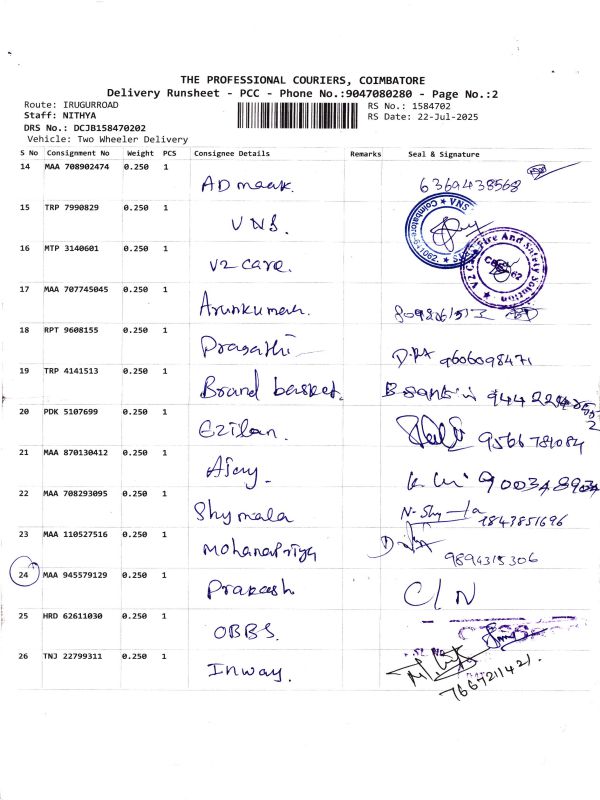 THE PROFESSIONAL COURIERS, COIMBATORE
Delivery Runsheet - PCC - Phone No.:9047080280 - Page No.:2
Route: IRUGURROAD
RS No.: 1584702
Staff: NITHYA
RS Date: 22-Jul-2025
DRS No.: DCJB158470202
Vehicle: Two Wheeler Delivery
S No Consignment No Weight PCS Consignee Details Remarks Seal & Signature
14 MAA 708902474 0.250 1 AD maak. 6369438568
15 TRP 7990829 0.250 1 VNS.
16 MTP 3140601 0.250 1 V2 care.
17 MAA 707745045 0.250 1 Arunkumar.
18 RPT 9608155 0.250 1 Pragathi 9606098471
19 TRP 4141513 0.250 1 Brand basket.
20 PDK 5107699 0.250 1 Ezilan. 9566781084
21 MAA 870130412 0.250 1 Ajay. 9003489034
22 MAA 708293095 0.250 1 Shymala 1843851696
23 MAA 110527516 0.250 1 MohanaPriya 9894315306
24 MAA 945579129 0.250 1 Prakash C/N
25 HRD 62611030 0.250 1 OBBS.
26 TNJ 22799311 0.250 1 Inway. 7667211421.